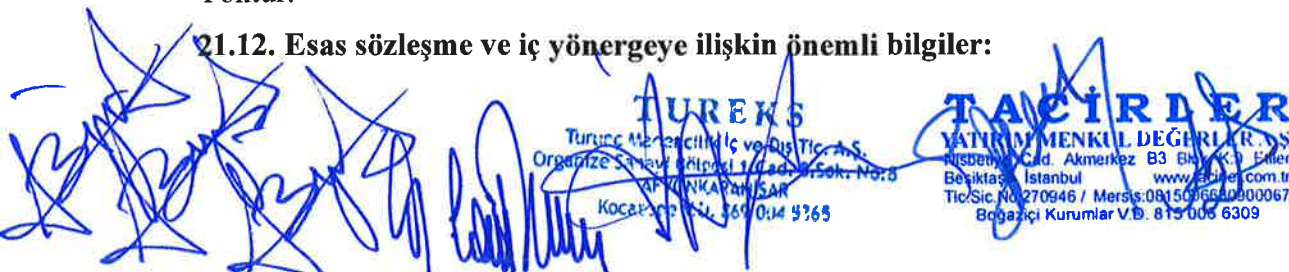 21.12. Esas sözleşme ve iç yönergeye ilişkin önemli bilgiler:
TUREKS
Turunç Madencilik İç ve Dış Tic. A.Ş.
Organize Sanayi Bölgesi 1. Cad. 8.Sok. No:8
AFYONKARAHİSAR
869 004 9765
TACİRLER
YATIRIM MENKUL DEĞERLER A.Ş.
Nispetiye Cad. Akmerkez B3 Blok K:9 Etiler
Beşiktaş İstanbul
Tic.Sic.No 270946 / Mersis:
Boğaziçi Kurumlar V.D. 815 006 6309